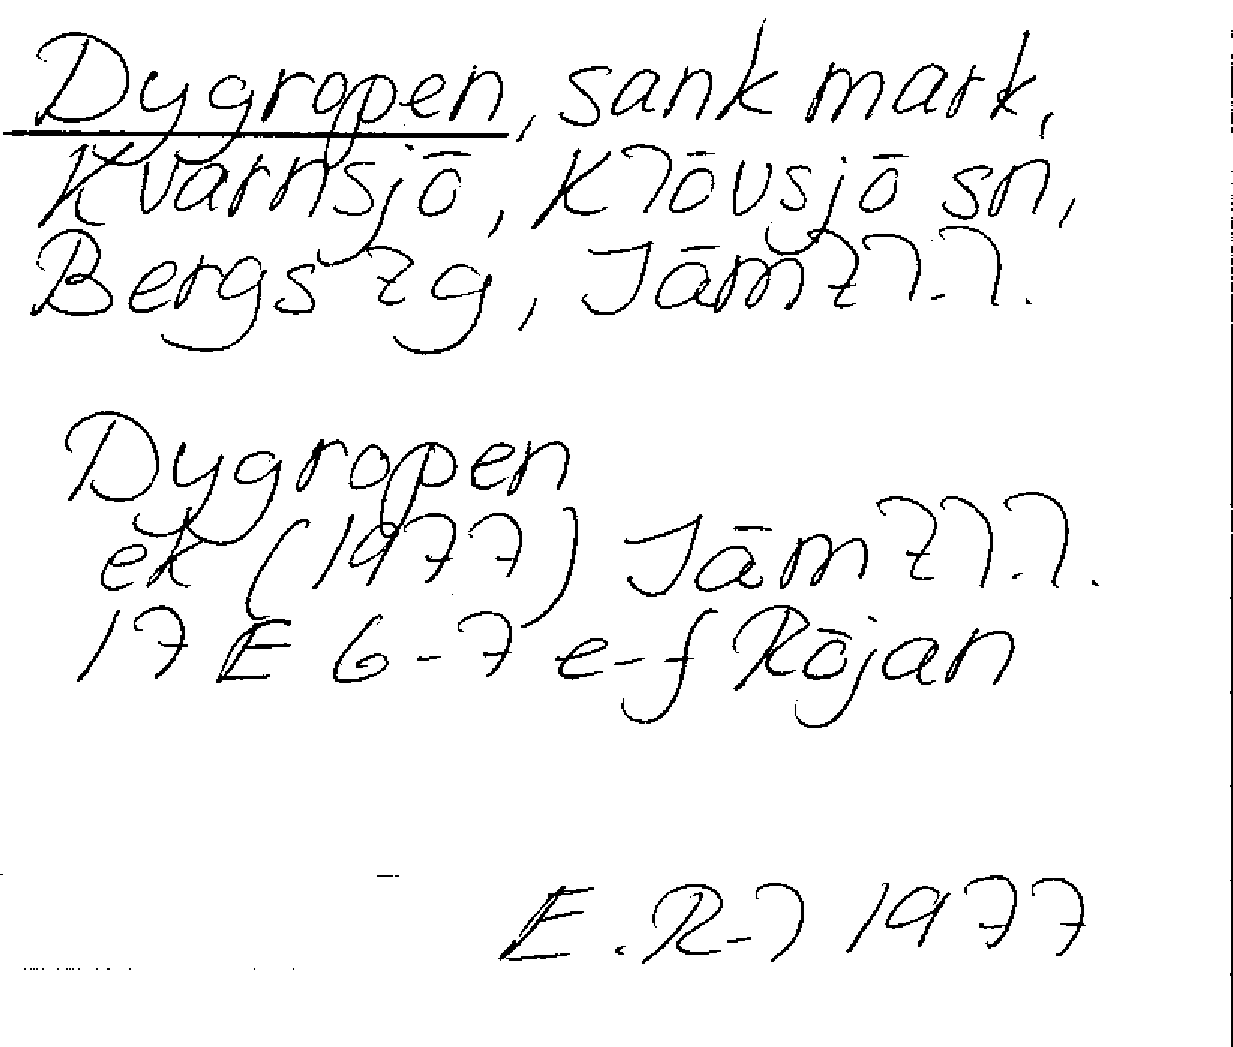 Dygropen, sank mark,
Kvarnsjö, Klövsjö sn,
Bergs tg, Jämtl. l.
Dygropen
ek (1977) Jämtl. l.
17 E 6-7 e-f Röjan
E. R-l 1977